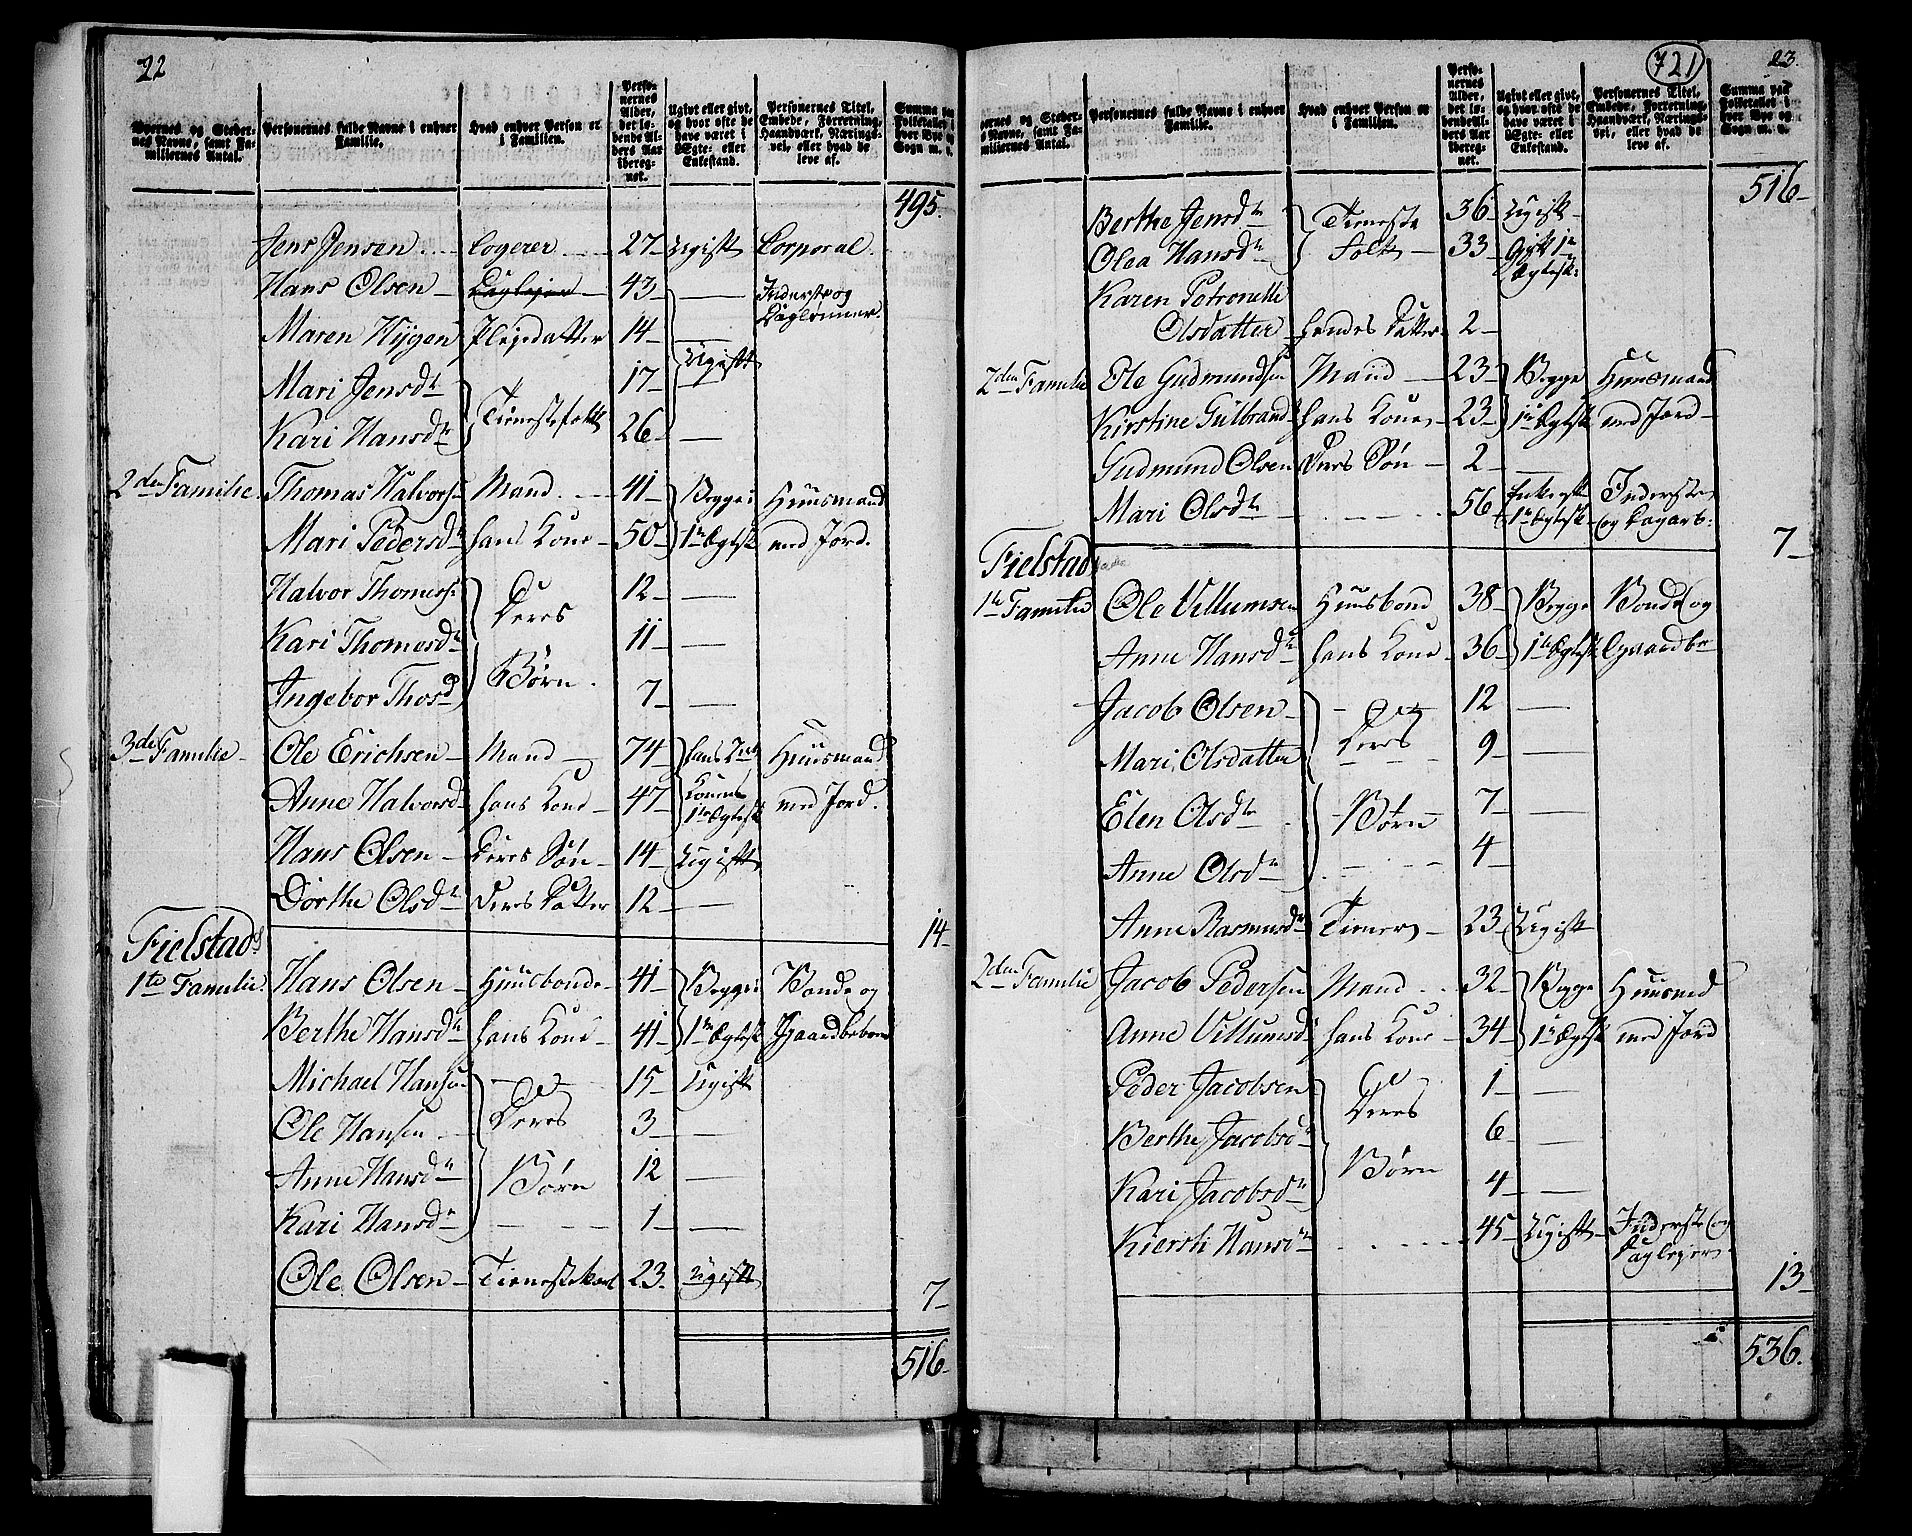 22
Byernes og Stedernes Navne, samt Familiernes Antal.
Personernes fulde Navne i enhver Familie.
Hvad enhver Person er i Familien.
Personernes Alder, det løbende Alders Aar iberegnet.
Ugivt eller givt, og hvor ofte de have været i Ægte- eller Enkestand.
Personernes Titel, Embede, Forretning, Haandværk, Næringsvei, eller hvad de leve af.
Summa paa Folketallet i hver Bye og Sogn m. v.
495.
Jens Jensen Logerer 27 Ugift Corporal.
Hans Olsen 43 — Inderste og Daglønner.
Maren Plejedatter 14 —
Mari Jensdtr 17 Ugift
Kari Hansdtr Tienestefolk 26 —
2den Familie. Thomas Halvors: Mand 41 Begge i Huusmand
Mari Pedersdtr hans Kone 50 1te Ægtesk med Jord.
Halvor Thomess: Deres 12 —
Kari Thomesdtr 11 —
Ingebor Thosd Børn 7 —
3die Familie Ole Erichsen Mand 74 hans 2det Huusmand
Anne Halvorsd hans Kone 47 Konens 1te Ægtesk med Jord.
Hans Olsen Deres Søn 14 Ugift
Dorthe Olsdtr Deres Datter 12 —
14
Fielstad
1te Familie. Hans Olsen Huusbonde 41 Begge i Bonde og
Berthe Hansdtr hans Kone 41 1te Ægtesk Gaardbeboer
Michael Hansen Deres 15 Ugift
Ole Hansen 3 —
Anne Hansdtr Børn 12 —
Kari Hansdtr 1 —
Ole Olsen Tienestekarl 23 Ugift
7
516
721
23.
Byernes og Stedernes Navne, samt Familiernes Antal.
Personernes fulde Navne i enhver Familie.
Hvad enhver Person er i Familien.
Personernes Alder, det løbende Alders Aar iberegnet.
Ugivt eller givt, og hvor ofte de have været i Ægte- eller Enkestand.
Personernes Titel, Embede, Forretning, Haandværk, Næringsvei, eller hvad de leve af.
Summa paa Folketallet i hver Bye og Sogn m. v.
516
Berthe Jensdtr Tieneste 36 Ugift
Olea Hansdtr Folk 33 Gift 1te Ægtesk:
Karen Petronelle
Olsdatter hendes Datter 2
2den Familie Ole Gudmundsen Mand 23 Begge Huusmand
Kirstine Gulbrand hans Kone 23 1te Ægtesk med Jord
Gudmund Olsen Deres Søn 2 —
Mari Olsdtr 56 Enke efter 1te Ægtesk Inderste og Dagarb:
7
Fielstad
1te Familie Ole Villumsen Huusbond 38 Begge Bonde og
Anne Hansdtr hans Kone 36 1te Ægtesk Gaardbe
Jacob Olsen 12 —
Mari Olsdatter Deres 9 —
Elen Olsdtr Børn 7 —
Anne Olsdtr 4
Anne Rasmusdtr Tiener 23 Ugift
2den Familie Jacob Pedersen Mand 32 Begge Huusmd
Anne Villumsdtr hans Kone 34 1te Ægtesk med Jord
Peder Jacobsen Deres 1 —
Berthe Jacobsdtr 6 —
Kari Jacobsdtr Børn 4 —
Kiersti Hansdtr 45 Ugift Inderste og Daglejer
13
536.